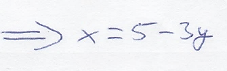 ⟹ x = 5 - 3y